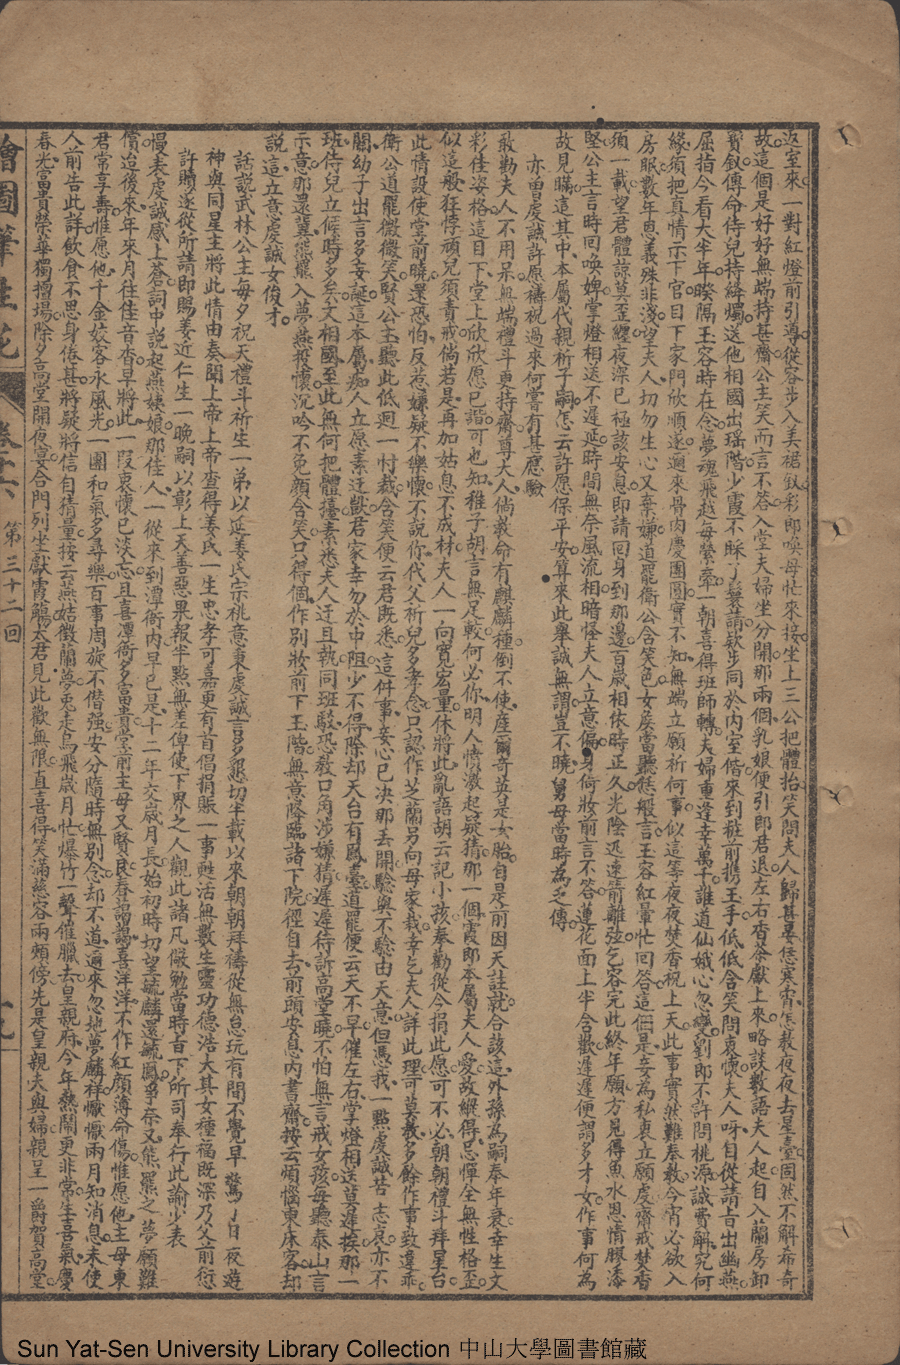 返室來一對紅燈前引導從容步入美裙釵彩即喚母忙來接坐上三公把體抬笑問夫人歸甚晏恁寒霄怎教夜夜去星臺固然不解希奇
故這個是好好無端持甚齋公主笑而言不答入堂夫婦坐分開那兩個乳娘便引郎君退左右香茶獻上來略談數語夫人起自入蘭房卸
寶釵傳命侍兒持絳燭送他相國出瑶階少霞不睬丫鬟請欵步同於內室偕來到粧前携玉手低低含笑問衷懷夫人呀自從請旨出幽燕
屈指今看大半年暌隔玉容時在念夢魂飛越每縈牽一朝喜得班師轉夫婦重逢幸萬千誰道仙娥心忽變劉郎不許問桃源誠費解究何
緣須把真情示下官目下家門欣順遂邇來骨肉慶團圓實不知無端立願祈何事似這等夜夜焚香祝上天此事實然難奉教今宵必欲入
房眠數年恩義殊非淺望夫人切勿生心又棄嫌道罷衛公含笑邑女虔當聽恁般言玉容紅暈忙回答這個是妾為私衷立願虔齋戒焚香
須一載望君體諒莫歪纏夜深已極該安息即請回身到那邊百歲相依時正久光陰迅速箭離弦乞容完此終年願方見得魚水恩情膠漆
堅公主言時回喚婢掌燈相送不遲延時間無奈風流相暗怪夫人立意偏身倚妝前言不答蓮花面上半含歡遲遲便謂多才女作事何為
故見瞞這其中本屬代親祈子嗣怎云許愿保平安算來此舉誠無謂豈不曉舅母當時為乏傳
亦曾虔誠許原禱祝過來何嘗有甚應驗
敢勸夫人不用呆無端禮斗更持齋尊大人倘教命有麒麟種倒不使產爾奇英是女胎自是前因天註就合該這外孫為嗣奉年衰幸生文
彩佳姿格這日下堂上欣欣愿已諧可也知稚子胡言無足較何必你明人憤激起疑猜那一個霞郎本屬夫人愛故縱得忌憚全無性格歪
似這般狂悖頑兒須責戒倘若是再加姑息不成材夫人一向寬宏量休將此亂語胡云記小孩奉勸從今捐此愿可不必朝朝禮斗拜星台
此情設使堂前曉還恐怕反惹嫌疑不樂懷不說你代父祈兒多孝念只認作芝蘭另向母家栽幸乞夫人詳此理可莫教多餘作事致違乖
衛公道罷微微笑賢公主聽此低迴一忖裁含笑便云君既悉這件事妾心已決那丟開驗與不驗由天意但憑我一點虔誠苦志哀亦不
關幼子出言多妄誕這本屬痴人立愿素迂獃君家幸勿於中阻少不得降却天台有鳳臺道罷便云天不早催左右掌燈相送莫遲挨那一
班侍兒立候時多矣文相國至此無何把體擡素悉夫人迂且執同班駁恐教口角涉嫌猜遲遲待訴高堂曉不怕無言戒女孩每聽泰山言
示意那還冀熊羆入夢燕投懷沉吟不免顏含笑只得個作別妝前下玉階無意降臨諸下院徑自去前頭安息內書齋按云煩惱東床客却
說這立意虔誠女俊才
話說武林公主每夕祝天禮斗祈生一弟以延姜氏宗桃意秉虔誠言多懇切半載以來朝朝拜禱從無怠玩有間不覺早驚了日夜遊
神與同星主將此情由奏聞上帝上帝查得姜氏一生忠孝可嘉更有首倡捐賑一事甦活無數生靈功德浩大其女種福既深乃父前愆
許贖遂從所請即賜姜近仁生一晚嗣以彰上天善惡果報半點無差俾使下界之人觀此諸凡儆勉當時旨下所司奉行此諭少表
慢表虔誠感上蒼詞中說起燕姨娘那佳人一從來到潭衙內早已是十二年六歲月長始初時切望毓麟還毓鳳爭奈又熊羆之夢願難
償迨後來年來月往佳音杳早將此一段衷懷已淡忘且喜潭衙多富貴堂前主母又賢良春藹藹喜洋洋不作紅顏薄命傷惟愿他主母東
君常享壽惟愿他千金姣客永風光一團和氣多尋樂百事周旋不偕强安分隨時無別念却不道邇來忽地夢麟祥懨懨兩月知消息未便
人前告此詳飲食不思身倦甚將疑將信自猜量接云燕姑徵蘭夢兎走烏飛歲月忙爆竹一聲催臘去皇親府今年熱鬧更非常生喜氣慶
春光富貴榮華獨擅場除夕高堂開夜宴合門列坐獻霞觴太君見此歡無限直喜得笑滿慈容兩頰傍先是皇親夫與婦親呈一爵賀高堂
繪圖筆生花 卷十六 第三十二回 十九
Sun Yat-Sen University Library Collection 中山大學圖書館藏